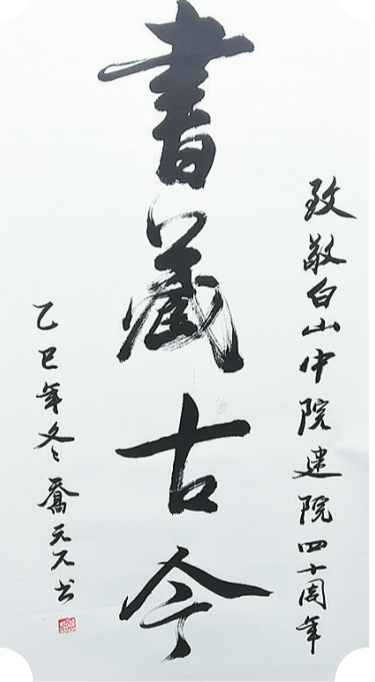 致敬白山中院建院四十周年
書藏古今
乙巳年冬 喬元石书